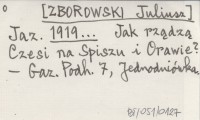 [ZBOROWSKI Juliusz]
Jaz. 1919... Jak rządzą
Czesi na Spiszu i Orawie?
– Gaz. Podh. 7, Jednodniówka.
BJ/051/0127